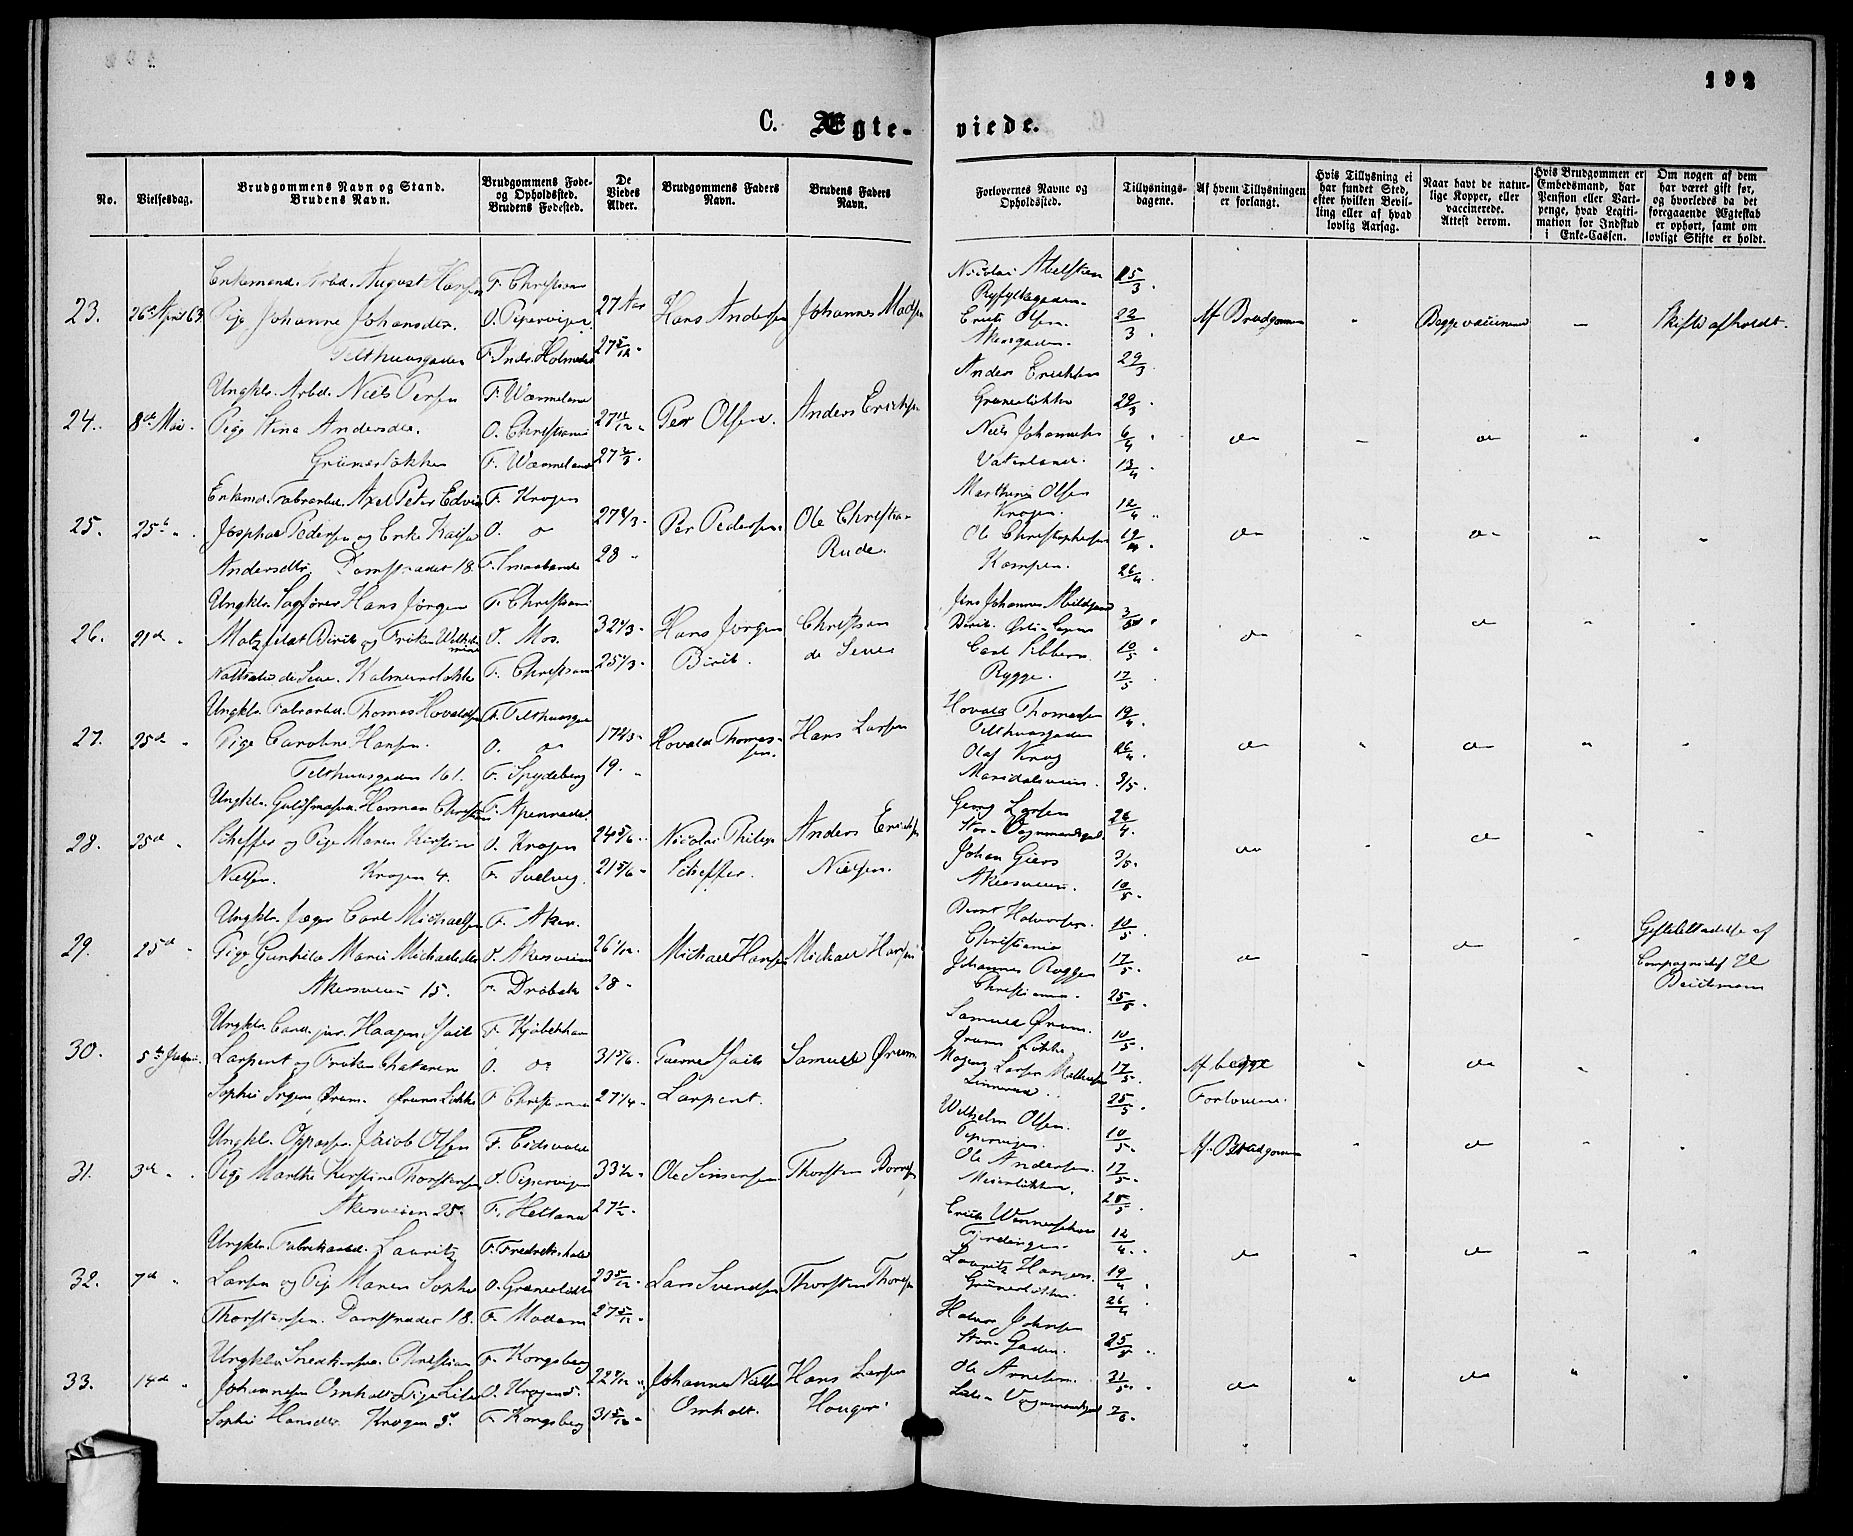 192
C. Ægte-viede.
No.
Vielsesdag.
Brudgommens Navn og Stand.
Brudens Navn.
Brudgommens Føde-
og Opholdssted.
Brudens Fødested.
De
Viedes
Alder.
Brudgommens Faders
Navn.
Brudens Faders
Navn.
Forlovernes Navne og
Opholdssted.
Tillysnings-
dagene.
Af hvem Tillysningen
er forlangt.
Hvis Tillysning ei
har fundet Sted,
efter hvilken Bevil-
ling eller af hvad
lovlig Aarsag.
Naar havt de natur-
lige Kopper, eller
vaccinerede.
Attest derom.
Hvis Brudgommen er
Embedsmand, har
Pension eller Vart-
penge, hvad Legiti-
mation for Indskud
i Enke-Cassen.
Om nogen af dem
har været gift før,
og hvorledes da det
foregaaende Ægteskab
er ophørt, samt om
lovligt Skifte er holdt.
23. 26de April 63
Enkemand. Arbd. August Hansen
Pige Johanne Johansdtr.
Telthuusgaden
F. Christiania
O. Pipervigen
F. Inds. Holmedal
27 Aar
27 5/12
Hans Andersen
Johannes Madsen
Nicolai Abelsteen
Ryfylkegaden
Erik Olsen
Akersgaden
15/3
22/3
29/3
Af Brudgommen
Begge vaccinerede
Skifte afholdt.
24. 8de Mai
Ungkl. Arbd. Niels Persen
Pige Stina Andersdtr.
Grünerløkken
F. Wærmeland
O. Christiania
F. Wærmeland
27 11/12
27 2/3
Per Olsen
Anders Erichsen
Anders Erichsen
Grünerløkken
Niels Johannesen
Vaterland
29/3
6/4
13/4
do
do
25. 25de "
Enkemd. Fabrarbd. Axel Peter Edvin
Josphat Pedersen og Enke Kaisa
Andersdtr. Damstrædet 18
F. Krogen
O. do
F. Smaalandene
27 2/3
28
Per Pedersen
Ole Christian
Rude
Marthinis Olsen
Krogen
Ole Christophersen
Kampen
12/4
19/4
26/4
do
do
26. 21de "
Ungkl. Sagfører Hans Jørgen
Motzfeldt Birch og Frøken Wilhelmine
Nathalie de Seue. Kalmeierløkken
F. Christiania
O. Mos.
F. Christiania
32 1/3
25 1/3
Hans Jørgen
Birch
Christian
de Seue
Carl Sibbern
Rygge
3/5
10/5
17/5
do
do
27. 25de "
Ungkl. Fabrarbd. Thomas Hovaldsen
Pige Caroline Hansen
Telthuusgaden 161.
F. Telthuusgd
O. do
F. Spydeberg
17 2/3
19
Hovald Thomassen
Hans Larsen
Hovald Thomassen
Telthuusgaden
Olaf Krog
Maridalsveien
19/4
26/4
3/5
do
do
28. 25de "
Ungkl. Guldsmedsv. Herman Christian
Scheffer og Pige Maren Kirstine
Nielsen. Krogen 4.
F. Apenrade
O. Krogen
F. Svelvig
24 5/6
21 5/6
Nicolai Philip
Scheffer
Anders Erichsen
Nielsen
Georg Larsen
Store Vognmandsgd
Johan Giers
Akersveien
26/4
3/5
10/5
do
do
29. 25de "
Ungkl. Jæger Carl Michaelsen
Pige Gunhilde Marie Michaelsdtr.
Akersveien 15.
F. Aker
O. Akersveien
F. Drøbak
26 1/12
28
Michael Hansen
Michael Hansen
Bernt Halvorsen
Christiania
Johannes Roggen
Christiania
10/5
17/5
25/5
do
do
Giftetilladelse af
Compagnichef H
30. 5te Juni
Ungkl. Cand. jur. Haagen Isaik
Larpent og Frøken Catarina
Sophie Ingens Ørum. Ørums Løkke
F. Kjøbenhavn
O. do
F. Christiania
31 5/6
27 1/4
Larpent
Samuel Ørum
Samuel Ørum
Ørums Løkke
Mogens Larpent Mathesen
10/5
17/5
25/5
Af begge
Forloverne
do
31. 3de "
Ungkl. Oppass. Jacob Olsen
Pige Marthe Kerstine Thorstensen
Akersveien 25.
F. Eidsvold
O. Pipervigen
F. Hetland
33 1/2
27 1/2
Ole Simensen
Wilhelm Olsen
Pipervigen
Ole Andersen
Meierløkken
10/5
17/5
25/5
Af Brudgommen
do
32. 7de "
Ungkl. Fabrikarbd. Lauritz
Larsen og Pige Maren Sophie
Thorstensen. Damstrædet 18.
F. Fredrikshald
O. Grünerløkken
F. Modum
23 5/12
27 5/12
Lars Svendsen
Thorsten Thorsen
Lauritz Hansen
Grünerløkken
12/4
19/4
26/4
do
do
33. 14de "
Ungkl. Snedkersv. Christian
Johannesen Omholt og Pige Lise
Sophie Hansdtr. Krogen 5.
F. Kongsberg
O. Krogen 5.
F. Kongsberg
31 5/12
Johannes Nielsen
Omholt
Hans Larsen
Hougen
Halvor Johnsen
Store Gaden
Ole Arnesen
Lille Vognmandsgd
25/5
31/5
7/6
do
do